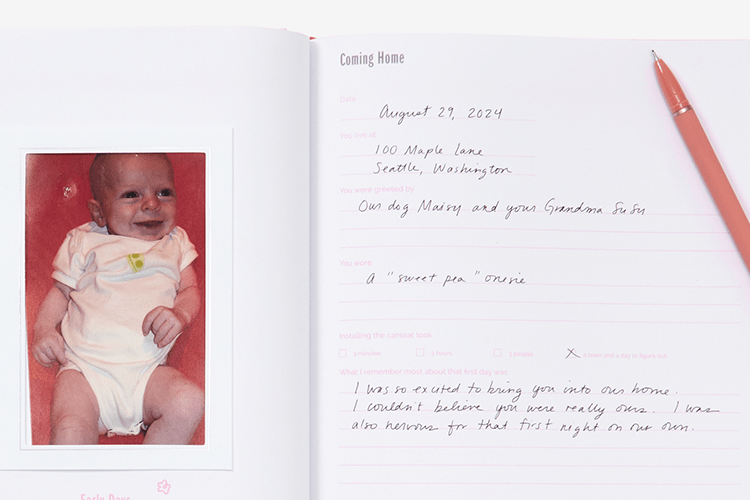 Coming Home
Date
August 29, 2024
You live at
100 Maple Lane
Seattle, Washington
You were greeted by
Our dog Maisy and your Grandma SuSu
You wore
A "sweet pea" onesie
Installing the carseat took
5 minutes
X
What I remember most about that first day was
I was so excited to bring you into our home.
I couldn't believe you were really ours. I was
also nervous for that first night on our own.
Early Days